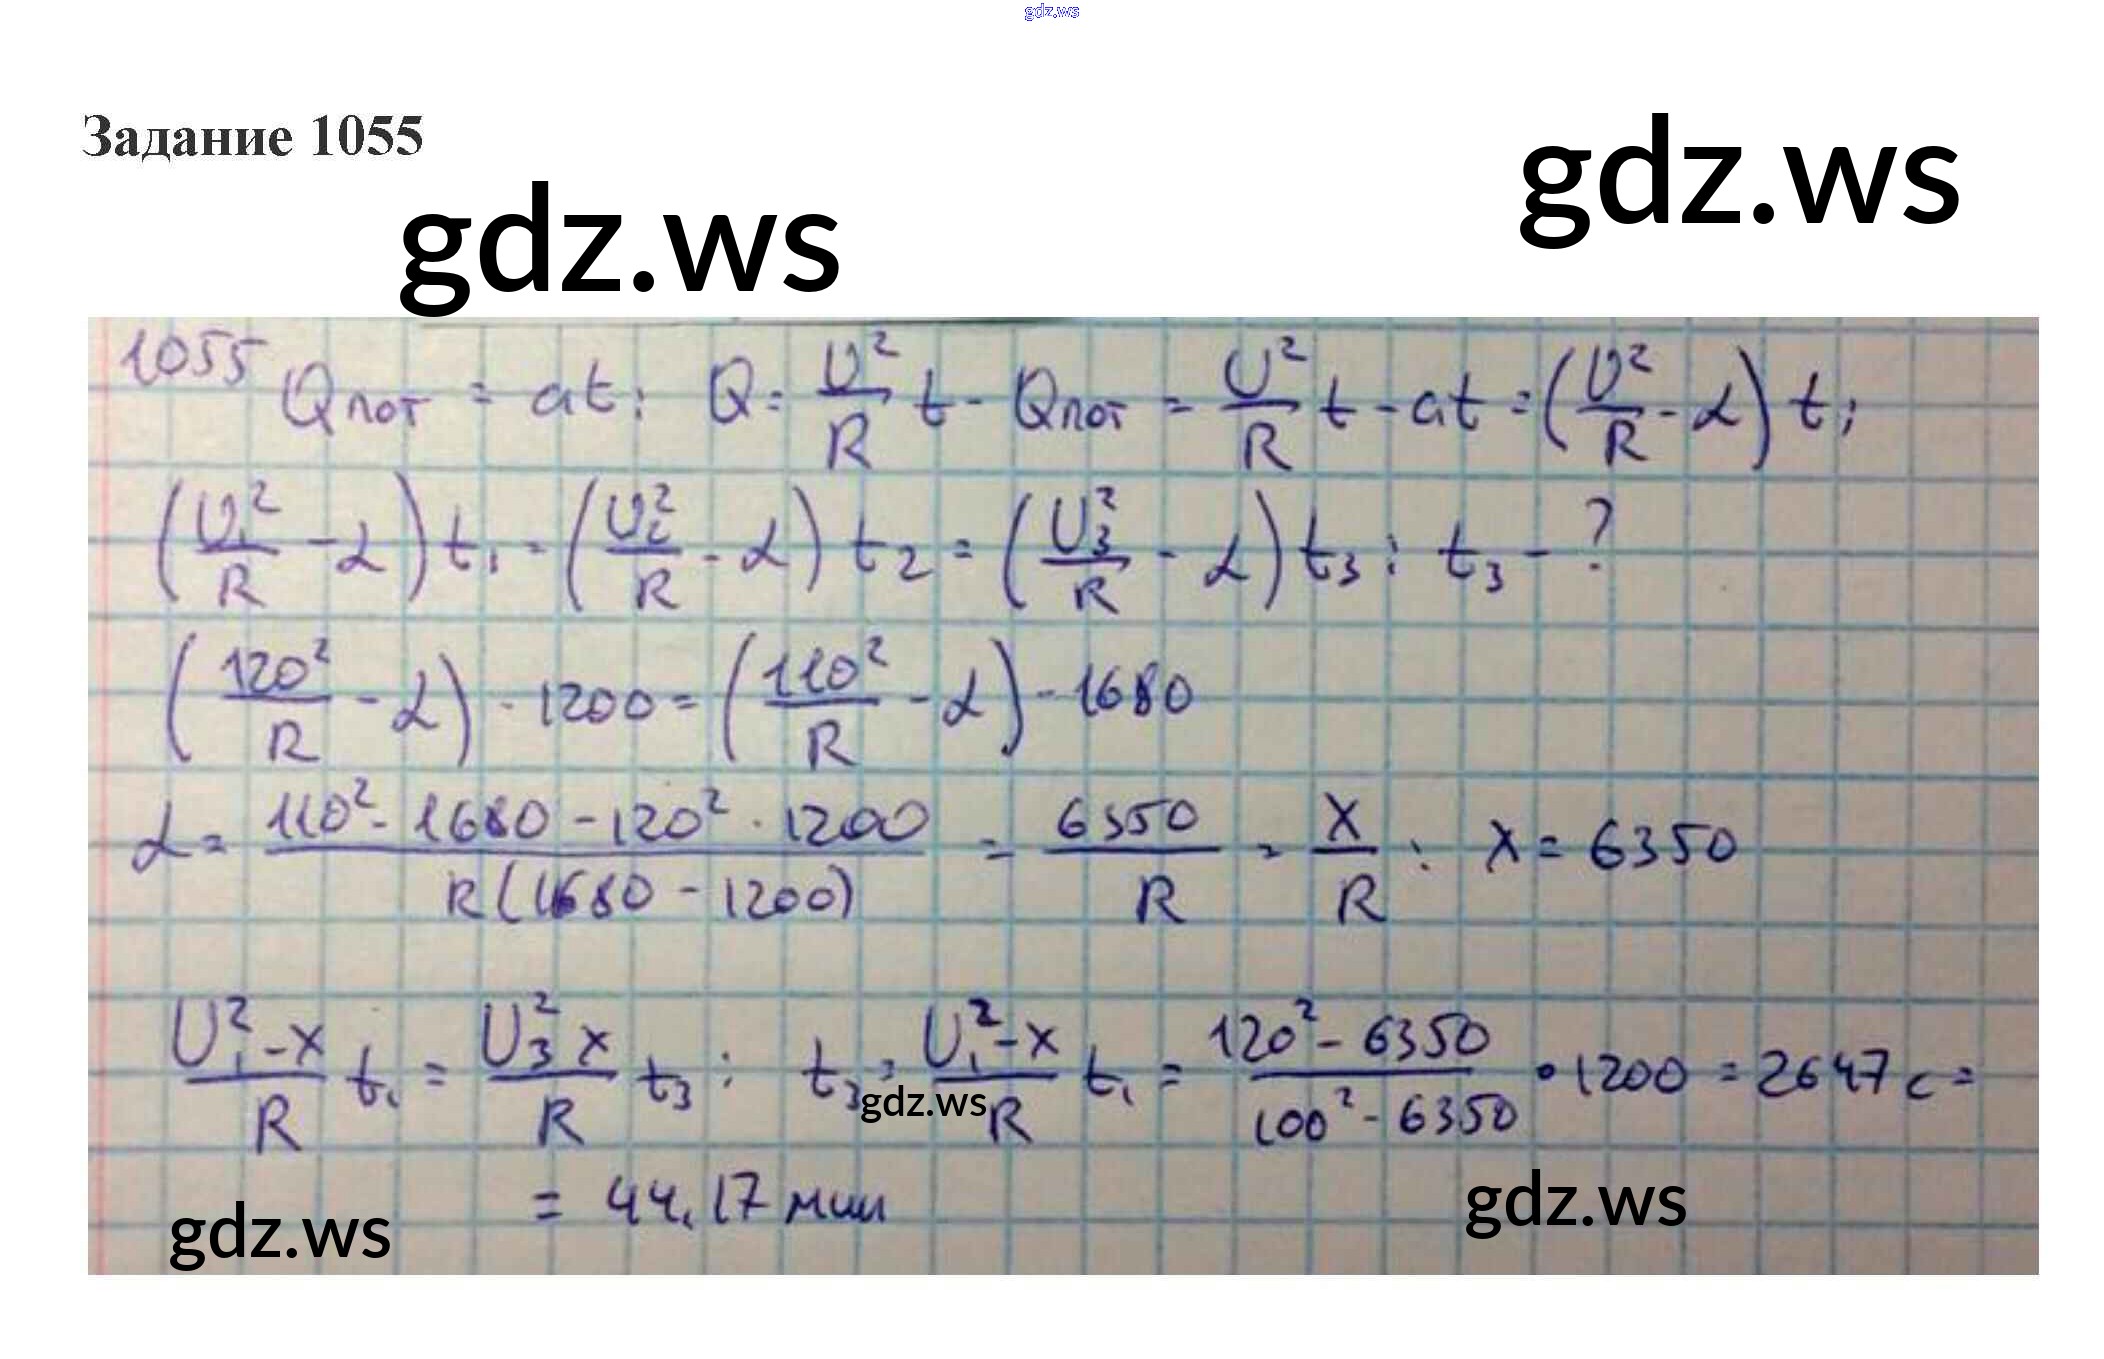 gdz.ws
Задание 1055
gdz.ws
gdz.ws
1055 Qпот = at; Q = U²/R t - Qпот = U²/R t - at = (U²/R - α) t;
(U₁²/R - α) t₁ = (U₂²/R - α) t₂ = (U₃²/R - α) t₃; t₃ - ?
(120²/R - α) · 1200 = (110²/R - α) · 1680
α = (110² · 1680 - 120² · 1200)/(R(1680 - 1200)) = 6350/R = x/R; x = 6350
(U₁² - x)/R t₁ = (U₃² x)/R t₃; t₃ = (U₁² - x)/R t₁ = (120² - 6350)/(100² - 6350) · 1200 = 2647 с =
gdz.ws
= 44,17 мин
gdz.ws
gdz.ws